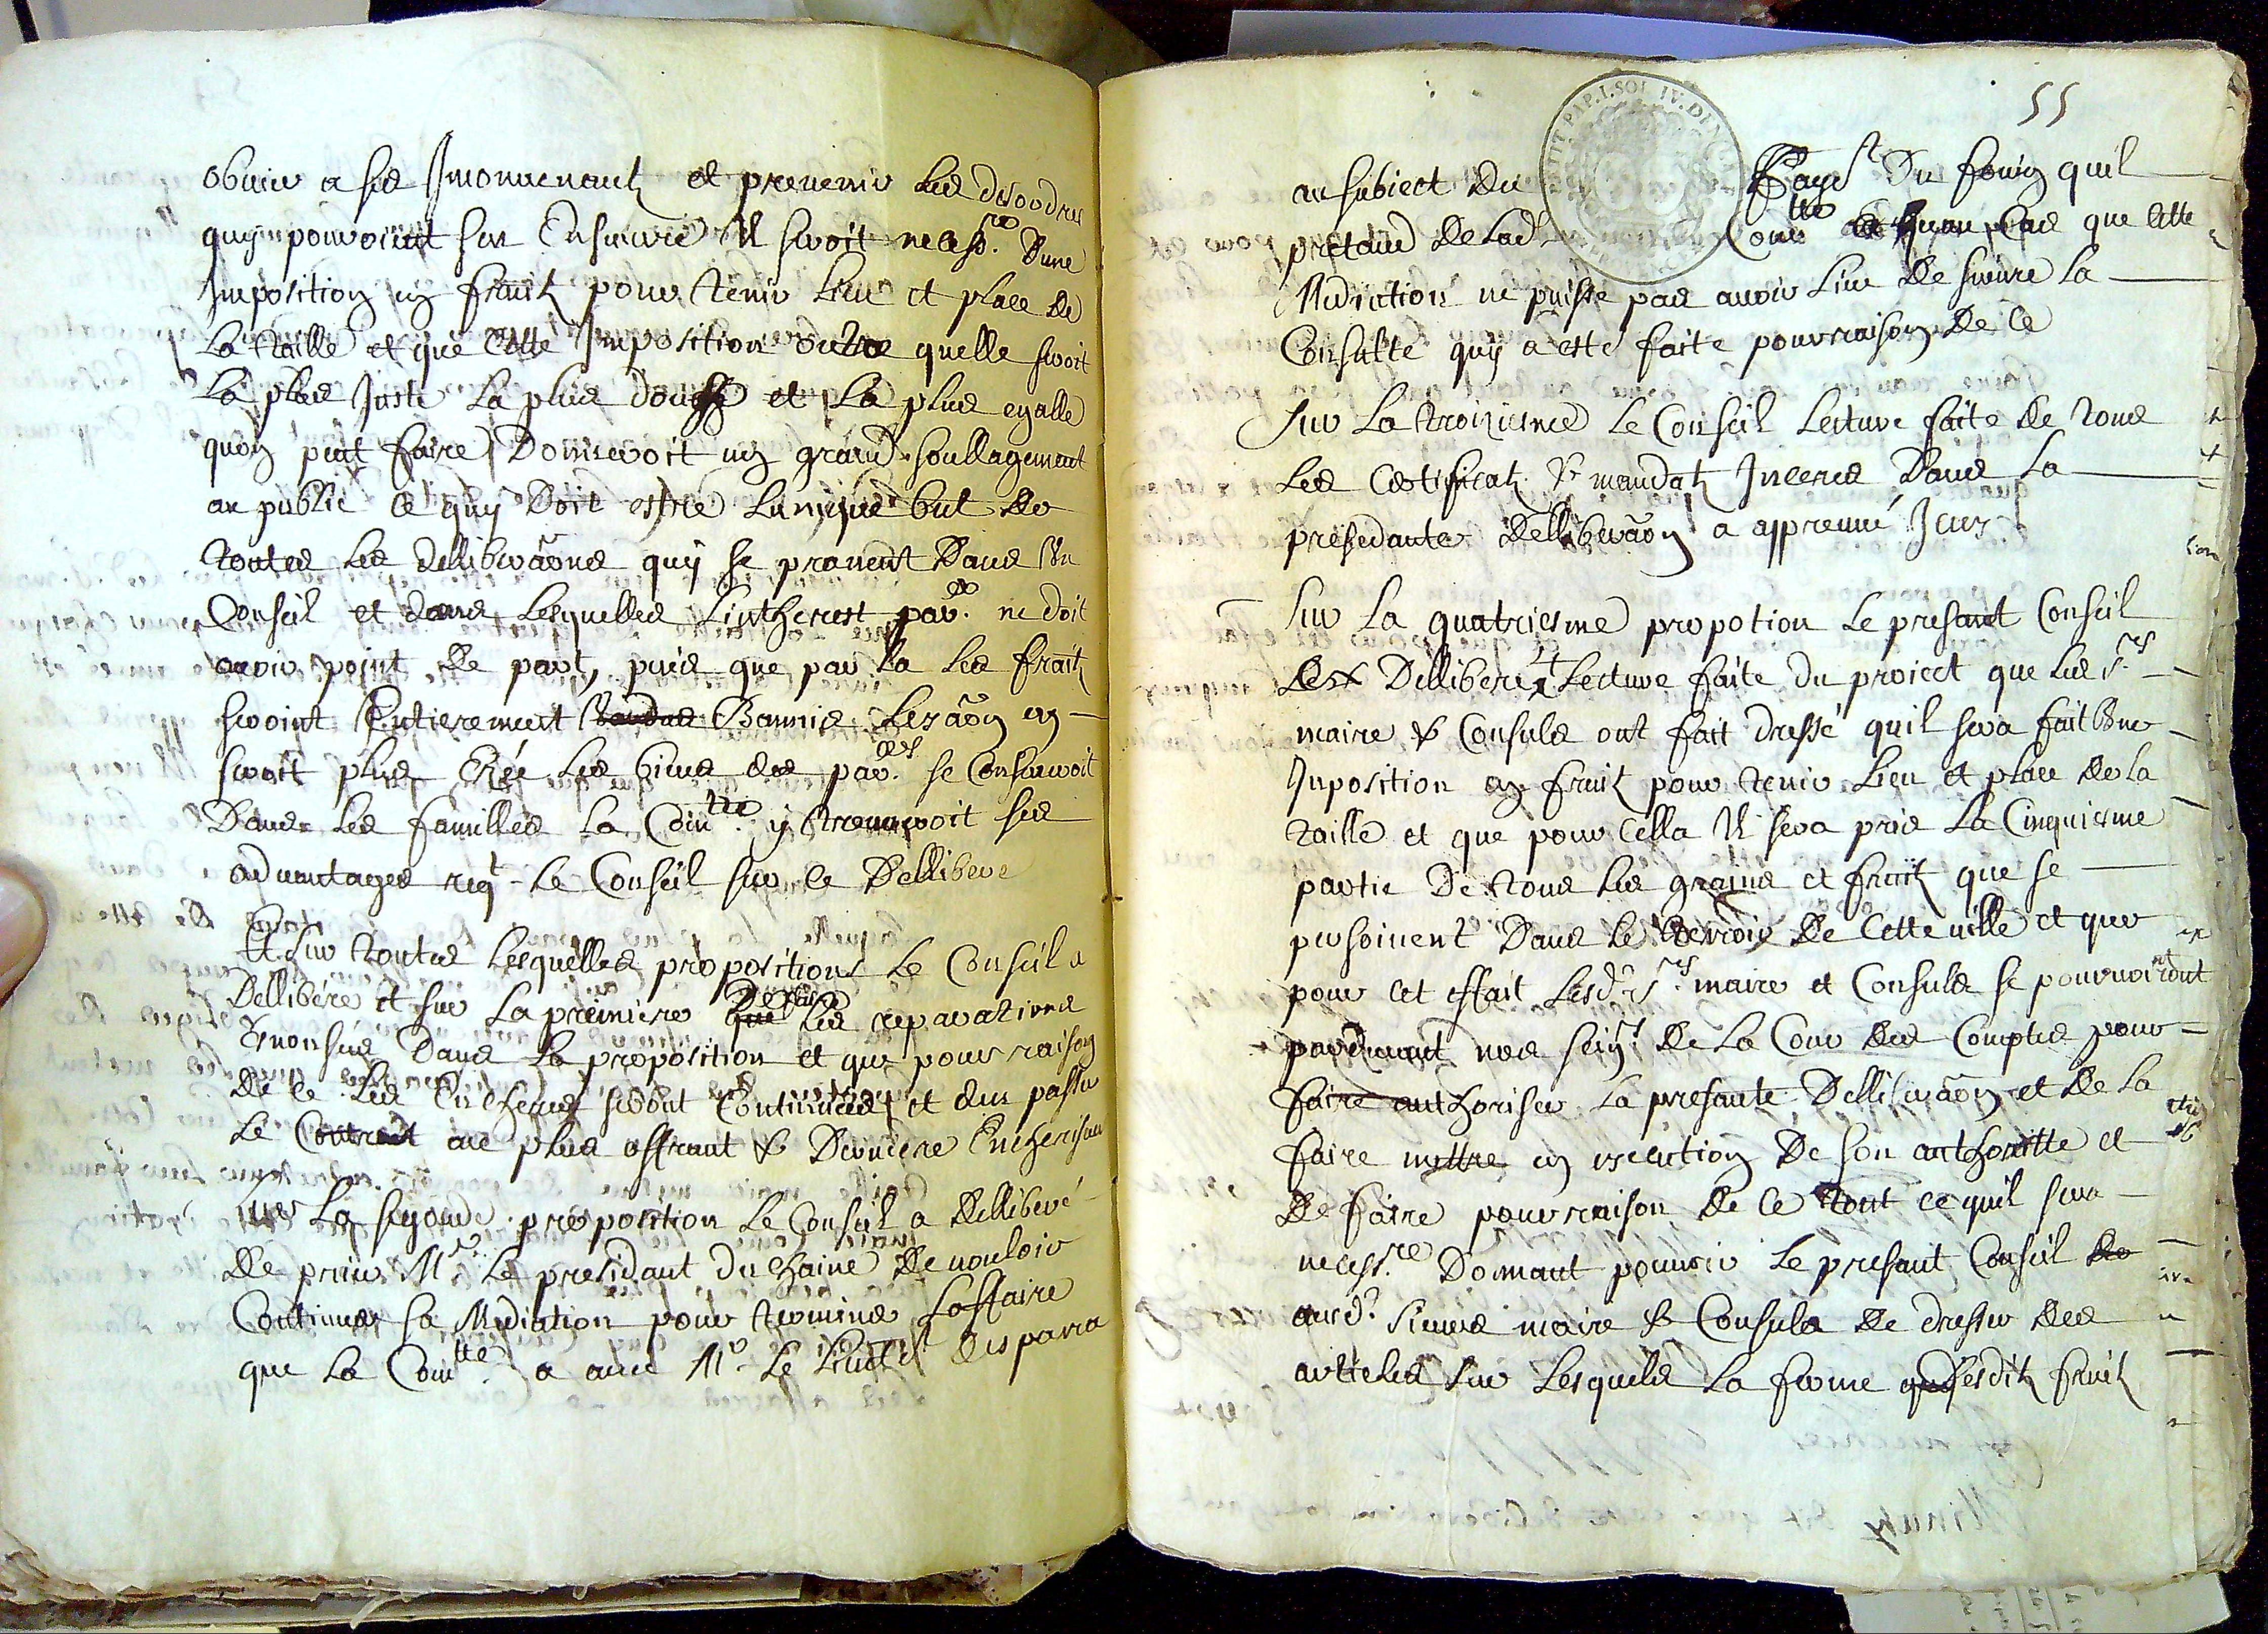 obvier a ses Inonvenantz et prevenir les desordres
quy pouvoient sen Ensuivre Il seroit necess.re Dune
Imposition en fruitz pour tenir Lieu et place de
La taille et que cette Imposition outre quelle seroit
La plus Juste La plus dousse et La plus egalle
quon peut faire Donneroit un grand soullagement
au public ce quy Doit estre Lunique but de
toutes les delliberaõns quy se pranent Dans Un
Conseil et dans Lesquelles Lintherest par.er ne doit
avoir point de part, puis que par la les fraitz
seroint Entierement Bannis Lezaõn en
seroit plus les biens des par.ers se Conserveroit
Dans les familles la Com.tté y trouveroit ses
advantages req.t le Conseil sur ce Dellibere
Et sur toutes Lesquelles propositions le Conseil a
Dellibére et sur La premiere que les reparations
Enonsées Dans la proposition et que pour raison
de ce les Encheres seront Continuées et den passer
le Contrait au plus offrant & Derniere Encherisseur
sur La segonde proposition le Conseil a delliberé
de prier M.r le presidant du chaine de vouloir
Continuer sa Mediation pour terminer Laffaire
que la Com.tté a avec M.r le Lieut.t desparra
55
au subiect du Pays.t Du foin quil
pretand de lad. Com.tté que cette
Mediation ne puisse pas avoir Lieu de suivre la
Consulte quy a esté faite pour raison de ce
sur La troiziesme le Conseil Lecture faite de tous
les Certificatz & mandatz Inceres dans la
presedante delliberaõn a appreuvé Iceux
sur la quatriesme propotion le presant Conseil
a Delliberé Lecture faite du proiect que les s.rs
maire & Consuls ont fait dressé quil sera fait Une
Inposition en fruitz pour tenir Lieu et place de la
taille et que pour cella Il sera pris La Cinquiesme
partie de tous les grains et fruitz que se
persoivent Dans le terroir de cette ville et que
pour cet effait lesd. s.rs maire et Consuls se pourvoiront
pardevant nos seig.rs de la Cour des Comptes pour
faire authoriser la presante Delliberaõn et de la
faire mettre en exeution de son authoritte et
de faire pour raison de ce tout ce quil sera
necess.re Donnant pouvoir le presant Conseil
ausd. sieurs maire & Consuls de dresser des
articles sur Lesquels la ferme desditz fruitz